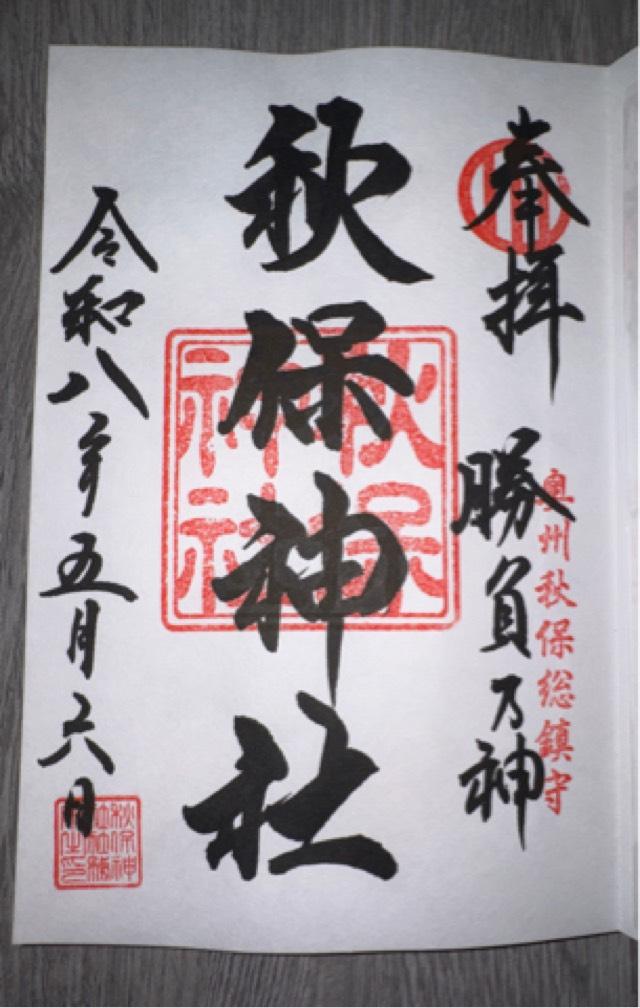 奉拝
勝負乃神
奥州秋保総鎮守
秋保神社
秋保
神社
令和八年五月六日